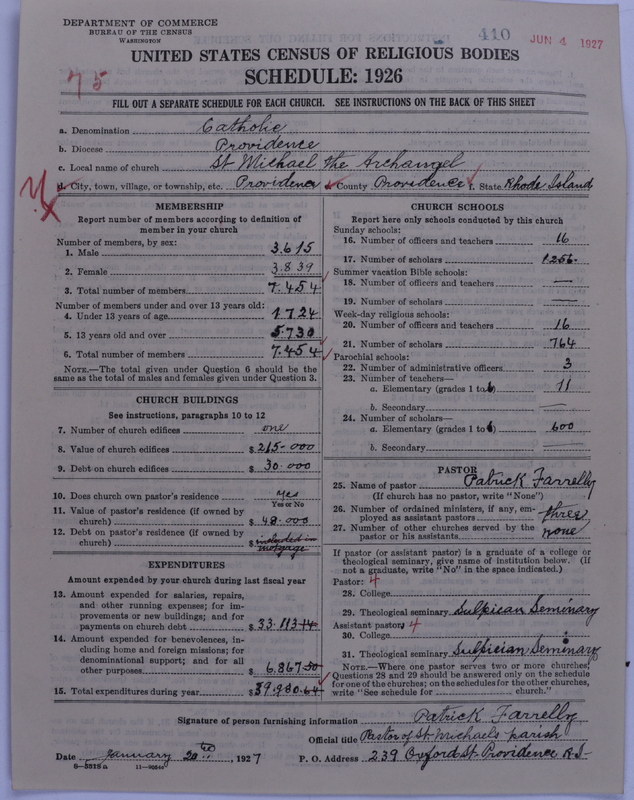 DEPARTMENT OF COMMERCE
BUREAU OF THE CENSUS
WASHINGTON
410
JUN 4 1927
UNITED STATES CENSUS OF RELIGIOUS BODIES
SCHEDULE: 1926
75
FILL OUT A SEPARATE SCHEDULE FOR EACH CHURCH. SEE INSTRUCTIONS ON THE BACK OF THIS SHEET
a. Denomination Catholic
b. Diocese Providence
c. Local name of church St Michael the Archangel
d. City, town, village, or township, etc. Providence e. County Providence f. State Rhode Island
MEMBERSHIP
Report number of members according to definition of
member in your church
Number of members, by sex:
1. Male 3.615
2. Female 3.839
3. Total number of members 7.454
Number of members under and over 13 years old:
4. Under 13 years of age 1724
5. 13 years old and over 5.730
6. Total number of members 7.454
NOTE.—The total given under Question 6 should be
same as the total of males and females given under Question 3.
CHURCH BUILDINGS
See instructions, paragraphs 10 to 12
7. Number of church edifices one
8. Value of church edifices $ 215-000
9. Debt on church edifices $ 30.000
10. Does church own pastor's residence yes
Yes or No
11. Value of pastor's residence (if owned by
church) $ 48.000
12. Debt on pastor's residence (if owned by
church) $ included in
mortgage
EXPENDITURES
Amount expended by your church during last fiscal year
13. Amount expended for salaries, repairs,
and other running expenses; for im-
provements or new buildings; and for
payments on church debt $ 33.113.14
14. Amount expended for benevolences, in-
cluding home and foreign missions; for
denominational support; and for all
other purposes $ 6.867.50
15. Total expenditures during year $ 39.980.64
CHURCH SCHOOLS
Report here only schools conducted by this church
Sunday schools:
16. Number of officers and teachers 16
17. Number of scholars 1256
Summer vacation Bible schools:
18. Number of officers and teachers —
19. Number of scholars —
Week-day religious schools:
20. Number of officers and teachers 16
21. Number of scholars 764
Parochial schools:
22. Number of administrative officers 3
23. Number of teachers—
a. Elementary (grades 1 to 6) 11
b. Secondary —
24. Number of scholars—
a. Elementary (grades 1 to 6) 600
b. Secondary
PASTOR
25. Name of pastor Patrick Farrelly
(If church has no pastor, write "None")
26. Number of ordained ministers, if any, em-
ployed as assistant pastors three
27. Number of other churches served by the
pastor or his assistants none
If pastor (or assistant pastor) is a graduate of a college or
theological seminary, give name of institution below. (If
not a graduate, write "No" in the space indicated.)
Pastor: 4
28. College
29. Theological seminary Sulpican Seminary
Assistant pastor: 4
30. College
31. Theological seminary Sulpician Seminary
NOTE.—Where one pastor serves two or more churches,
Questions 28 and 29 should be answered only on the schedule
for one of the churches; on the schedules for the other churches,
write "See schedule for church."
Signature of person furnishing information Patrick Farrelly
Official title Pastor of St. Michaels parish
Date January 20th, 1927 P. O. Address 239 Oxford St. Providence R I-
8—5518a 11—9054